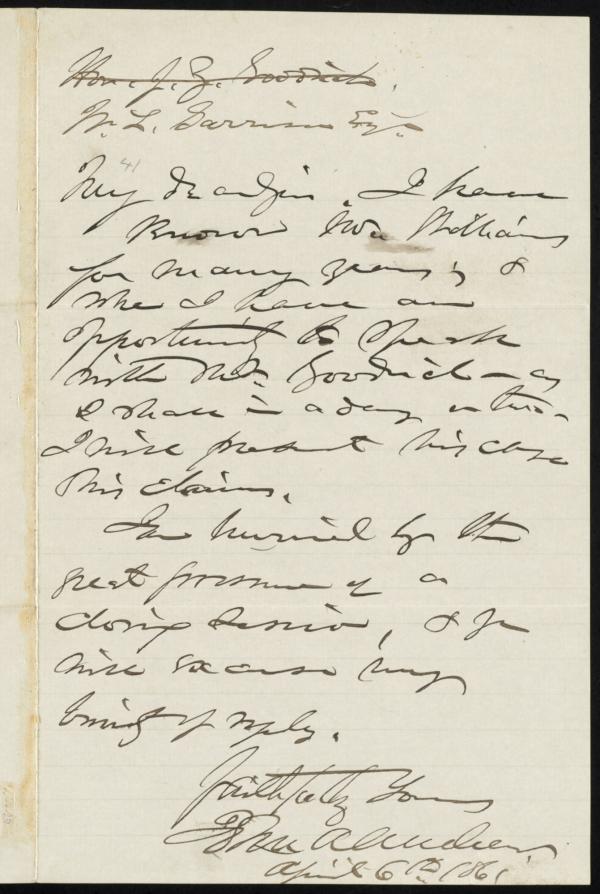 Hon. J. Z. Goodrich.
Wm. L. Garrison Esq.
41
My dear Sir. I have
known Mr. Williams
for many years; &
when I have an
opportunity to speak
with Mr. Goodrich – as
I shall in a day or two –
I will present his case
& his claims.
I am hurried by the
great pressure of a
closing session, & you
will excuse my
brevity of reply.
Faithfully Yours
John A. Andrew
April 6th 1861